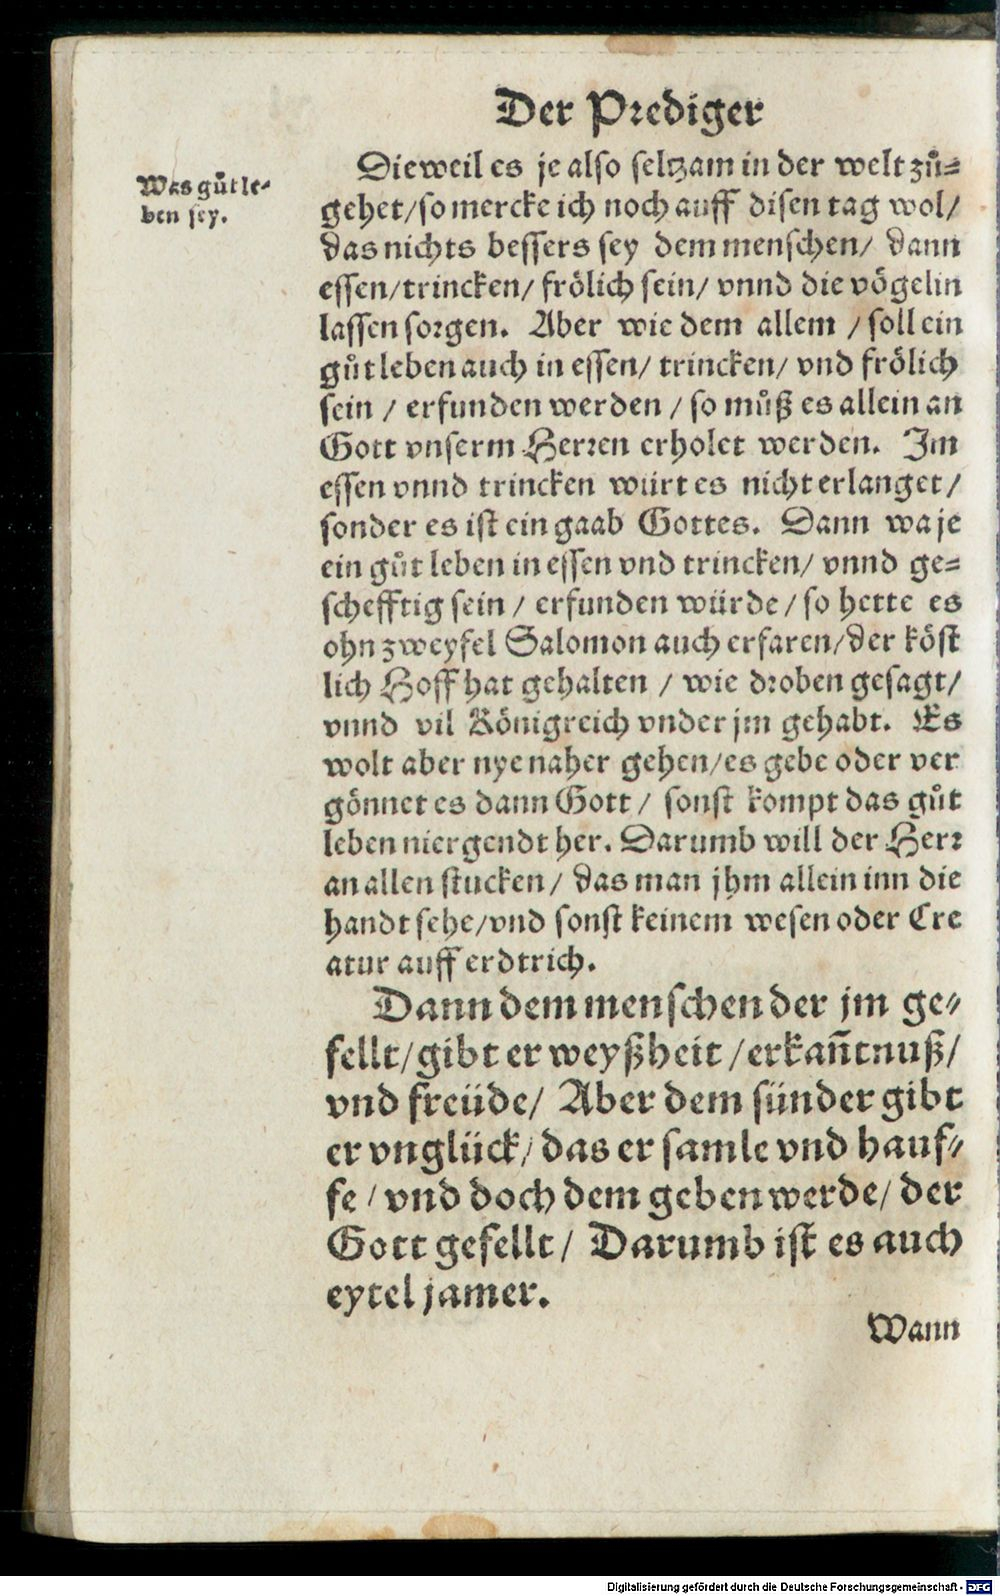 Der Prediger
Was gůt le-
ben sey.
Dieweil es je also seltzam in der welt zů-
gehet/ so mercke ich noch auff disen tag wol/
das nichts bessers sey dem menschen/ dann
essen/ trincken/ frölich sein/ vnnd die vögelin
lassen sorgen. Aber wie dem allem / soll ein
gůt leben auch in essen/ trincken/ vnd frölich
sein / erfunden werden / so můß es allein an
Gott vnserm Herren erholet werden. Im
essen vnnd trincken würt es nicht erlanget/
sonder es ist ein gaab Gottes. Dann wa je
ein gůt leben in essen vnd trincken/ vnnd ge-
schefftig sein / erfunden würde / so hette es
ohn zweyfel Salomon auch erfaren/ der köst
lich Hoff hat gehalten / wie droben gesagt/
vnnd vil Königreich vnder jm gehabt. Es
wolt aber nye naher gehen/ es gebe oder ver
gönnet es dann Gott / sonst kompt das gůt
leben niergendt her. Darumb will der Herr
an allen stucken / das man jhm allein inn die
handt sehe/ vnd sonst keinem wesen oder Cre
atur auff erdtrich.
Dann dem menschen der jm ge-
fellt/ gibt er weyßheit / erkañtnuß/
vnd freüde/ Aber dem sünder gibt
er vnglück/ das er samle vnd hauf-
fe / vnd doch dem geben werde/ der
Gott gefellt / Darumb ist es auch
eytel jamer.
Wann
Digitalisierung gefördert durch die Deutsche Forschungsgemeinschaft - DFG